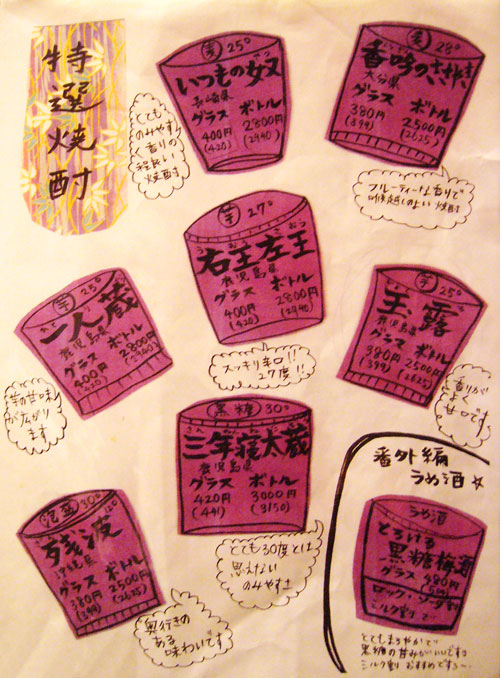 特選焼酎
麦 25°
いつもの奴
長崎県
グラス ボトル
400円 2800円
(420) (2940)
とても
のみやすく
香りの
程良い
焼酎
麦 28°
大分県
グラス ボトル
380円 2500円
(399) (2625)
フルーティーな香りで
喉越しのよい焼酎
芋 27°
右王左王
鹿児島県
グラス ボトル
400円 2800円
(420) (2940)
スッキリ辛口!!
27度!!
芋 25°
一人蔵
鹿児島県
グラス ボトル
400円 2800円
(420) (2940)
芋の甘味
が広がり
ます
芋 25°
玉露
鹿児島県
グラス ボトル
380円 2500円
(399) (2625)
香りが
よく
甘口です
黒糖 30°
三年寝太蔵
鹿児島県
グラス ボトル
420円 3000円
(441) (3150)
とても30度とは
思えない
のみやすさ
泡盛 30°
残波
沖縄県
グラス ボトル
380円 2500円
(399) (2625)
奥行きの
ある
味わいです
番外編
うめ酒☆
うめ酒
とろける
黒糖梅酒
グラス 490円
ロック・ソーダ割
ミルク割りで
とてもまろやかで
黒糖の甘みがいいです
ミルク割 おすすめです〜